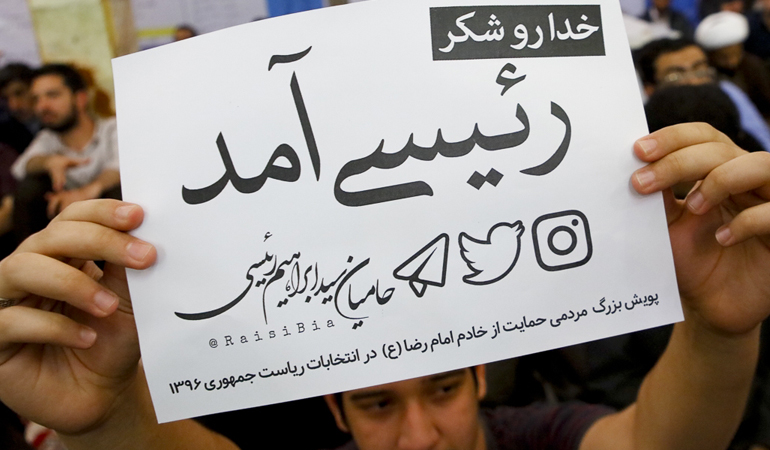 خدا رو شکر
رئیسے آمد
حامیان سید ابراهیم رئیسی
@RaisiBia
پویش بزرگ مردمی حمایت از خادم امام رضا (ع) در انتخابات ریاست جمهوری ۱۳۹۶